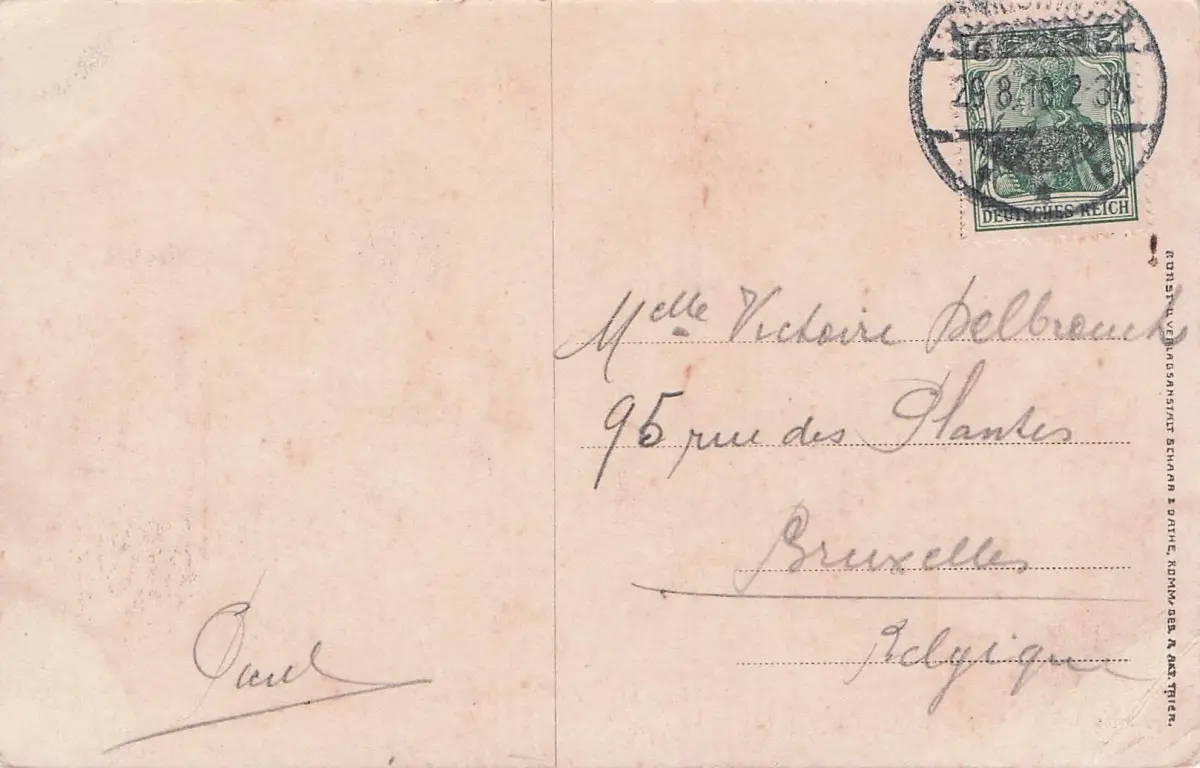 5 5
29.8.10.2-3N
DEUTSCHES REICH
Melle Victoire
95 rue des Plantes
Bruxelles
Belgique
Paul
KUNST- U. VERLAGSANSTALT SCHAAR & DATHE, KOMM.-GES. A. AKT. TRIER.